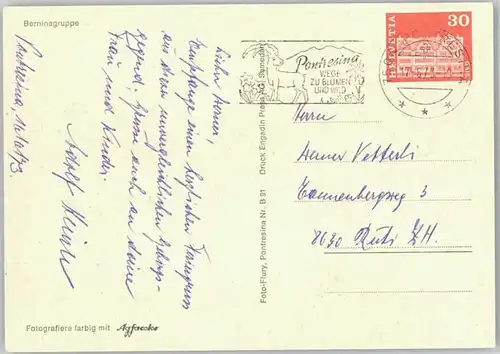 Berninagruppe
Lieber Werner,
Empfange einen herzlichen Feriengruss
aus dieser unvergleichlichen Gebirgs-
gegend. Grüsse auch an deine
Frau und Kinder.
Adolf
Pontresina,
Fotografiere farbig mit Agfacolor
Foto-Flury, Pontresina Nr. B 91 Druck Engadin Press AG Samedan
Pontresina
WEGE
ZU BLUMEN
UND WILD
HELVETIA 30
Herrn
Werner Vetterli
Tannenbergweg 3
8630 Rüti ZH.